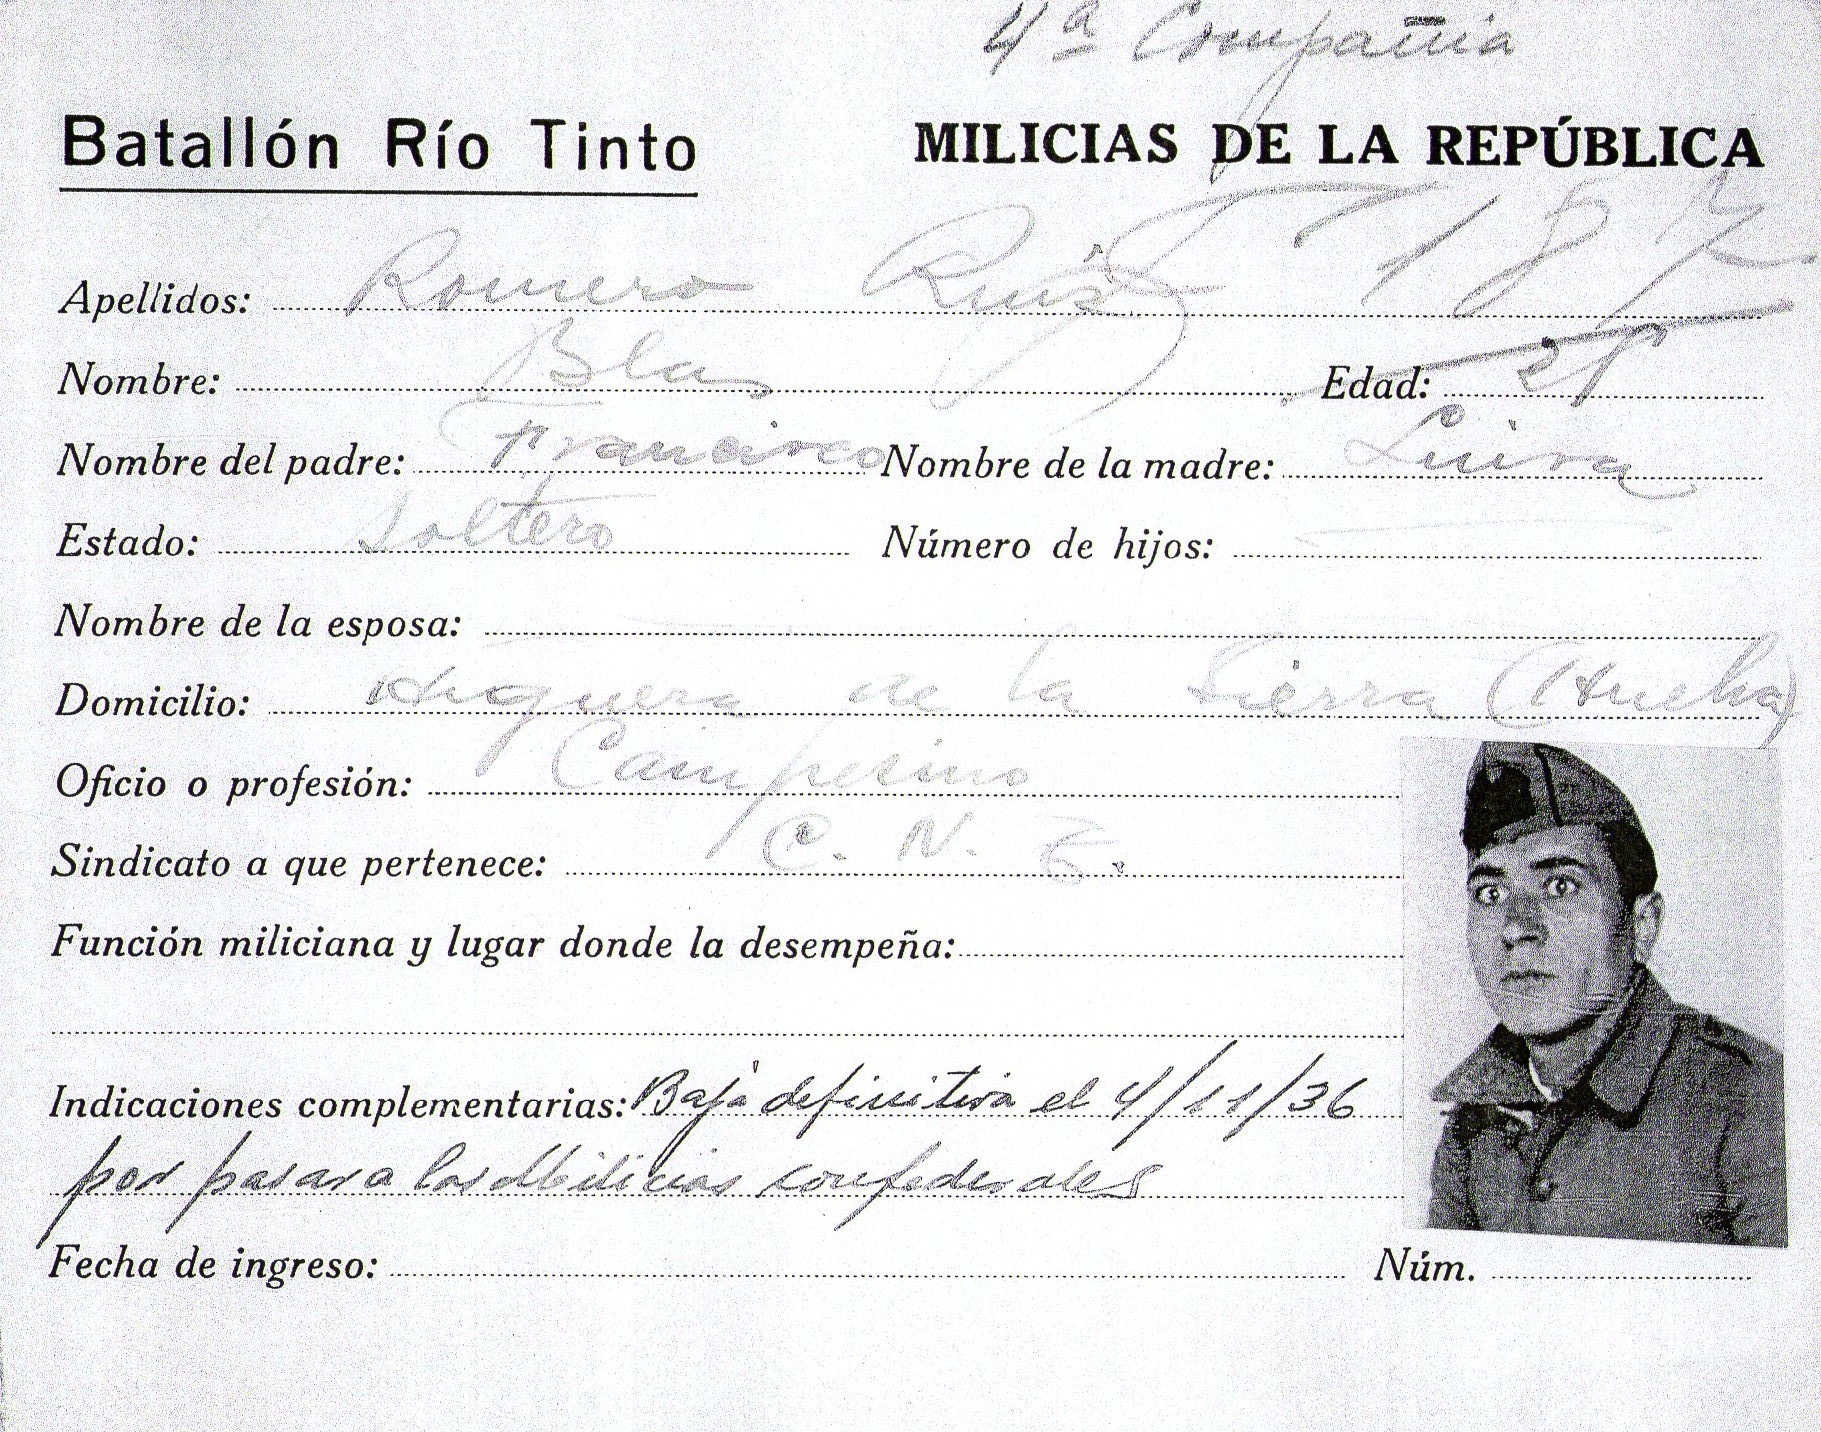 4ª Compañia
Batallón Río Tinto MILICIAS DE LA REPÚBLICA
Apellidos: Romero Ruiz
Nombre: Blas Edad:
Nombre del padre: Francisco Nombre de la madre: Luisa
Estado: soltero Número de hijos:
Nombre de la esposa:
Domicilio: Higuera de la Sierra (Huelva)
Oficio o profesión: Campesino
Sindicato a que pertenece: C. N. T.
Función miliciana y lugar donde la desempeña:
Indicaciones complementarias: Baja definitiva el 4/11/36
por pasar a las Milicias confederales
Fecha de ingreso: Núm.